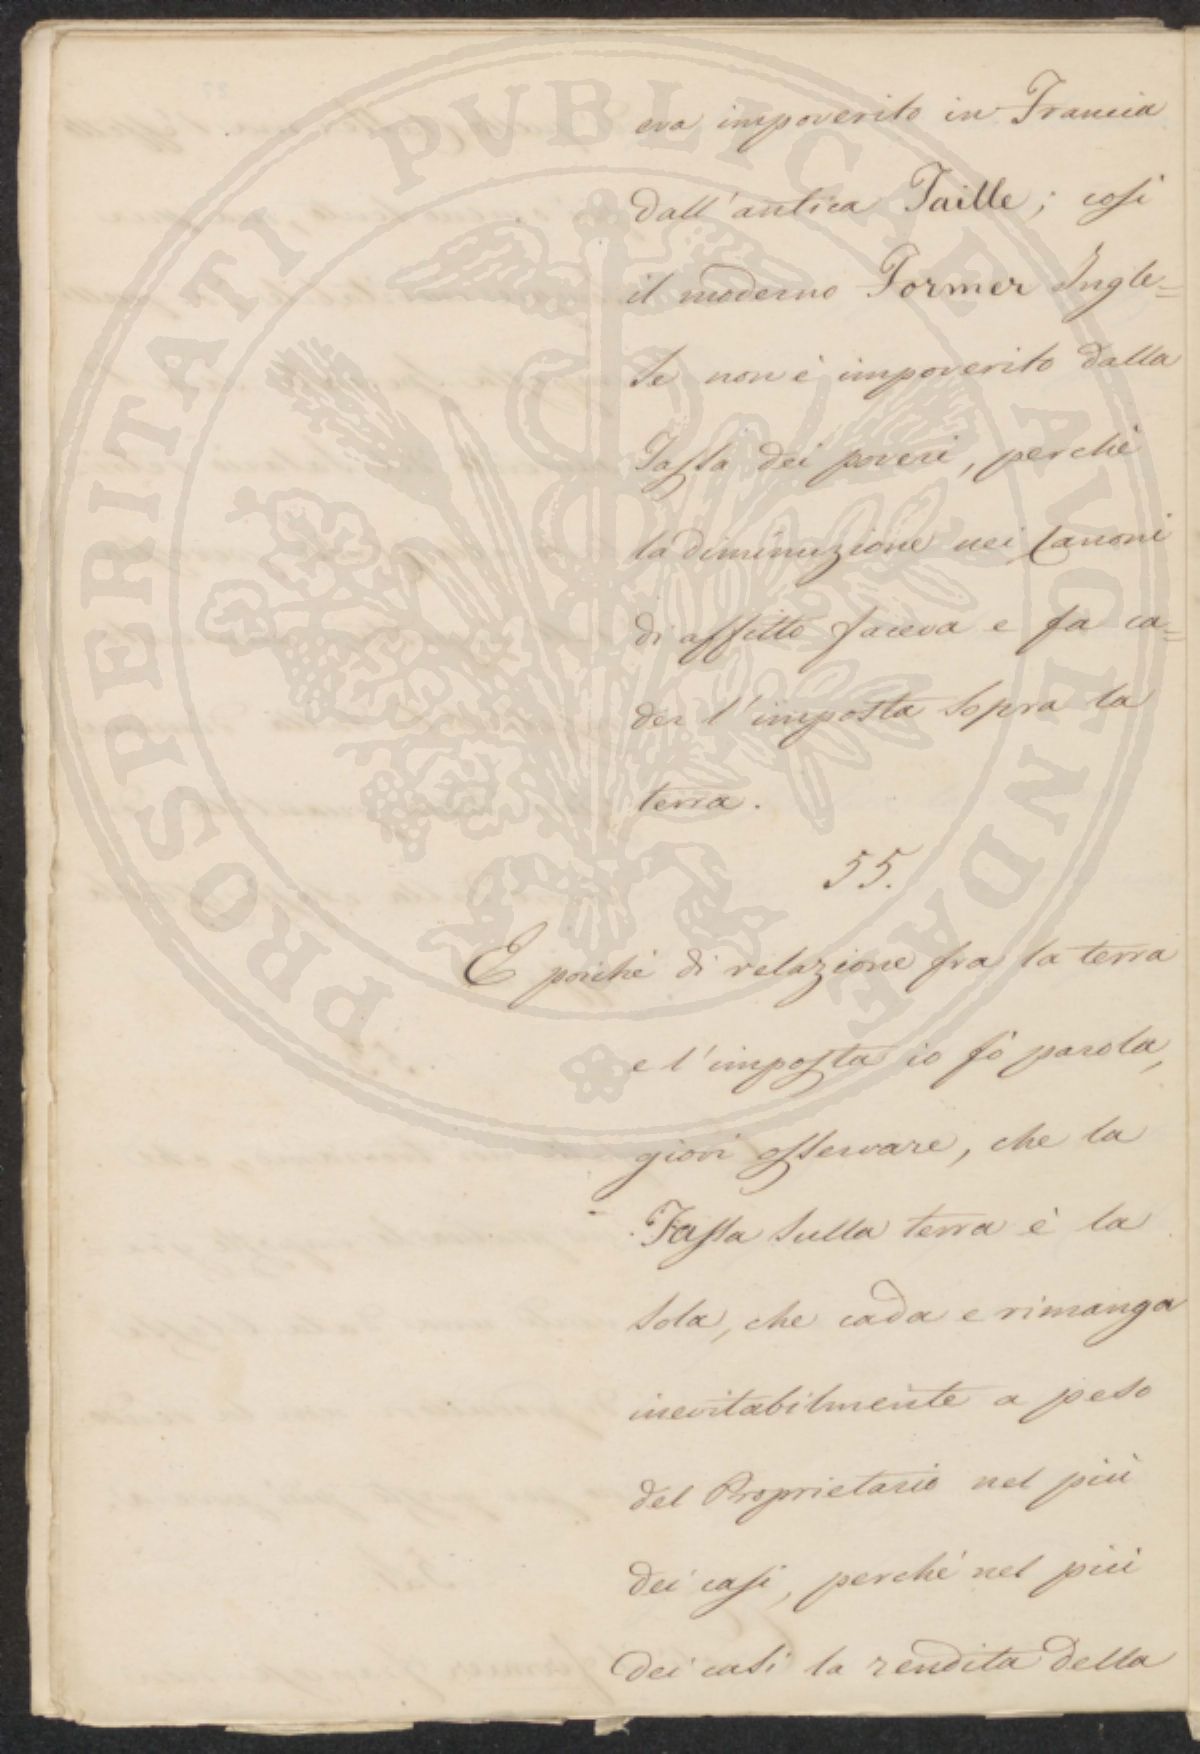 era impoverito in Francia
dall'antica Taille; così
il moderno Former Ingle=
se non è impoverito dalla
Tassa dei poveri, perchè
la diminuzione nei Canoni
di affitto faceva e fa ca=
der l'imposta sopra la
terra.
55.
E poichè di relazione fra la terra
e l'imposta io fò parola,
giovi osservare, che la
Tassa sulla terra è la
sola, che cada e rimanga
inevitabilmente a peso
del Proprietario nel più
dei casi, perchè nel più
dei casi la rendita della
PROSPERITATI PVBLICAE AVGENDAE